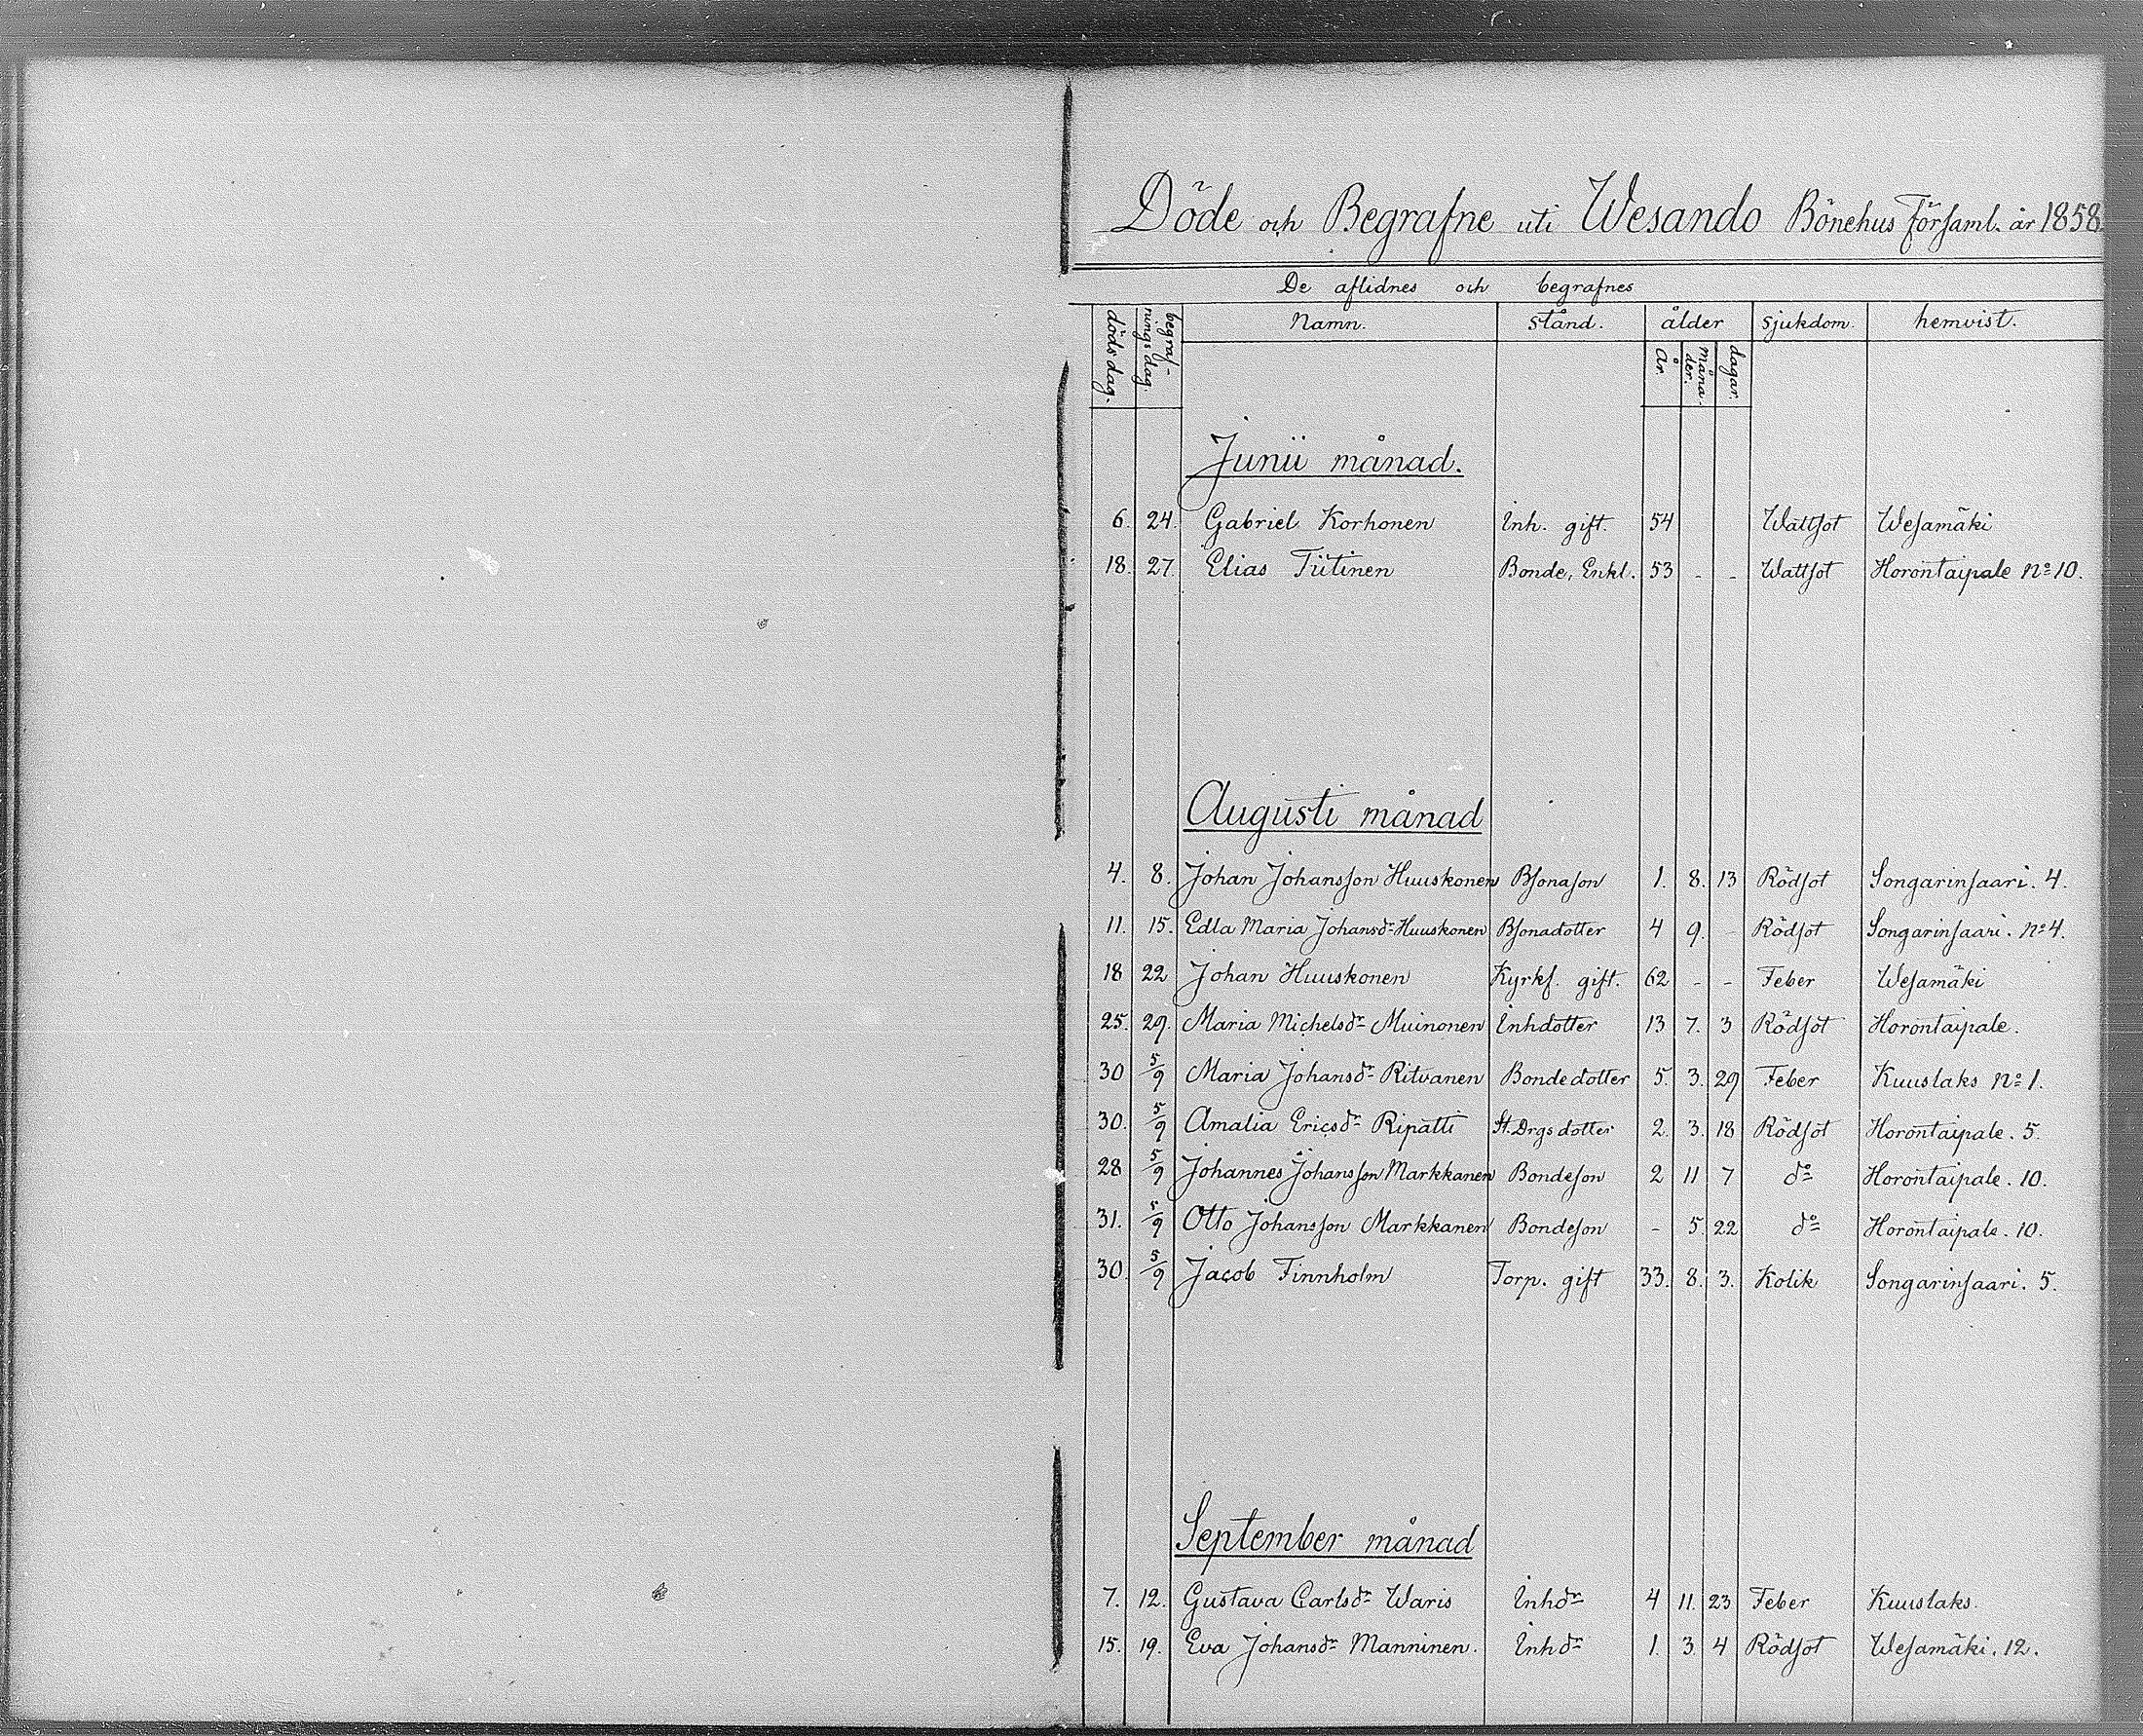 Döde och Begrafne uti Wesando Bönehus Församl. år 1858.
De aflidnes och begrafnes
dödsdag. begraf-nings dag. Namn. stånd. ålder sjukdom. hemvist.
År. måna-der. dagar.
Junii månad.
6. 24. Gabriel Korhonen Inh. gift. 54 Wattsot Wesamäki
18. 27. Elias Tiitinen Bonde, Enkl. 53 - - Wattsot Horontaipale No 10.
Augusti månad
4. 8. Johan Johansson Huuskonen Bsonason 1. 8. 13 Rödsot Songarinsaari. 4.
11. 15. Edla Maria Johansdr Huuskonen Bsonadotter 4 9. - Rödsot Songarinsaari. No 4.
18 22 Johan Huuskonen Kyrkf. gift. 62 - - Feber Wesamäki
25. 29. Maria Michelsdr Muinonen Inhdotter 13 7. 3 Rödsot Horontaipale.
30 5/9 Maria Johansdr Ritvanen Bondedotter 5. 3. 29 Feber Kuuslaks No 1.
30. 5/9 Amalia Ericsdr Ripatti St. Drgsdotter 2. 3. 18 Rödsot Horontaipale. 5.
28 5/9 Johannes Johansson Markkanen Bondeson 2 11 7 do Horontaipale. 10.
31. 5/9 Otto Johansson Markkanen Bondeson - 5 22 do Horontaipale. 10.
30. 5/9 Jacob Finnholm Torp. gift 33. 8. 3. Kolik Songarinsaari. 5.
September månad
7. 12. Gustava Carlsdr Waris Inhdr 4 11. 23 Feber Kuuslaks.
15. 19. Eva Johansdr Manninen. Inhdr 1. 3. 4 Rödsot Wesamäki. 12.